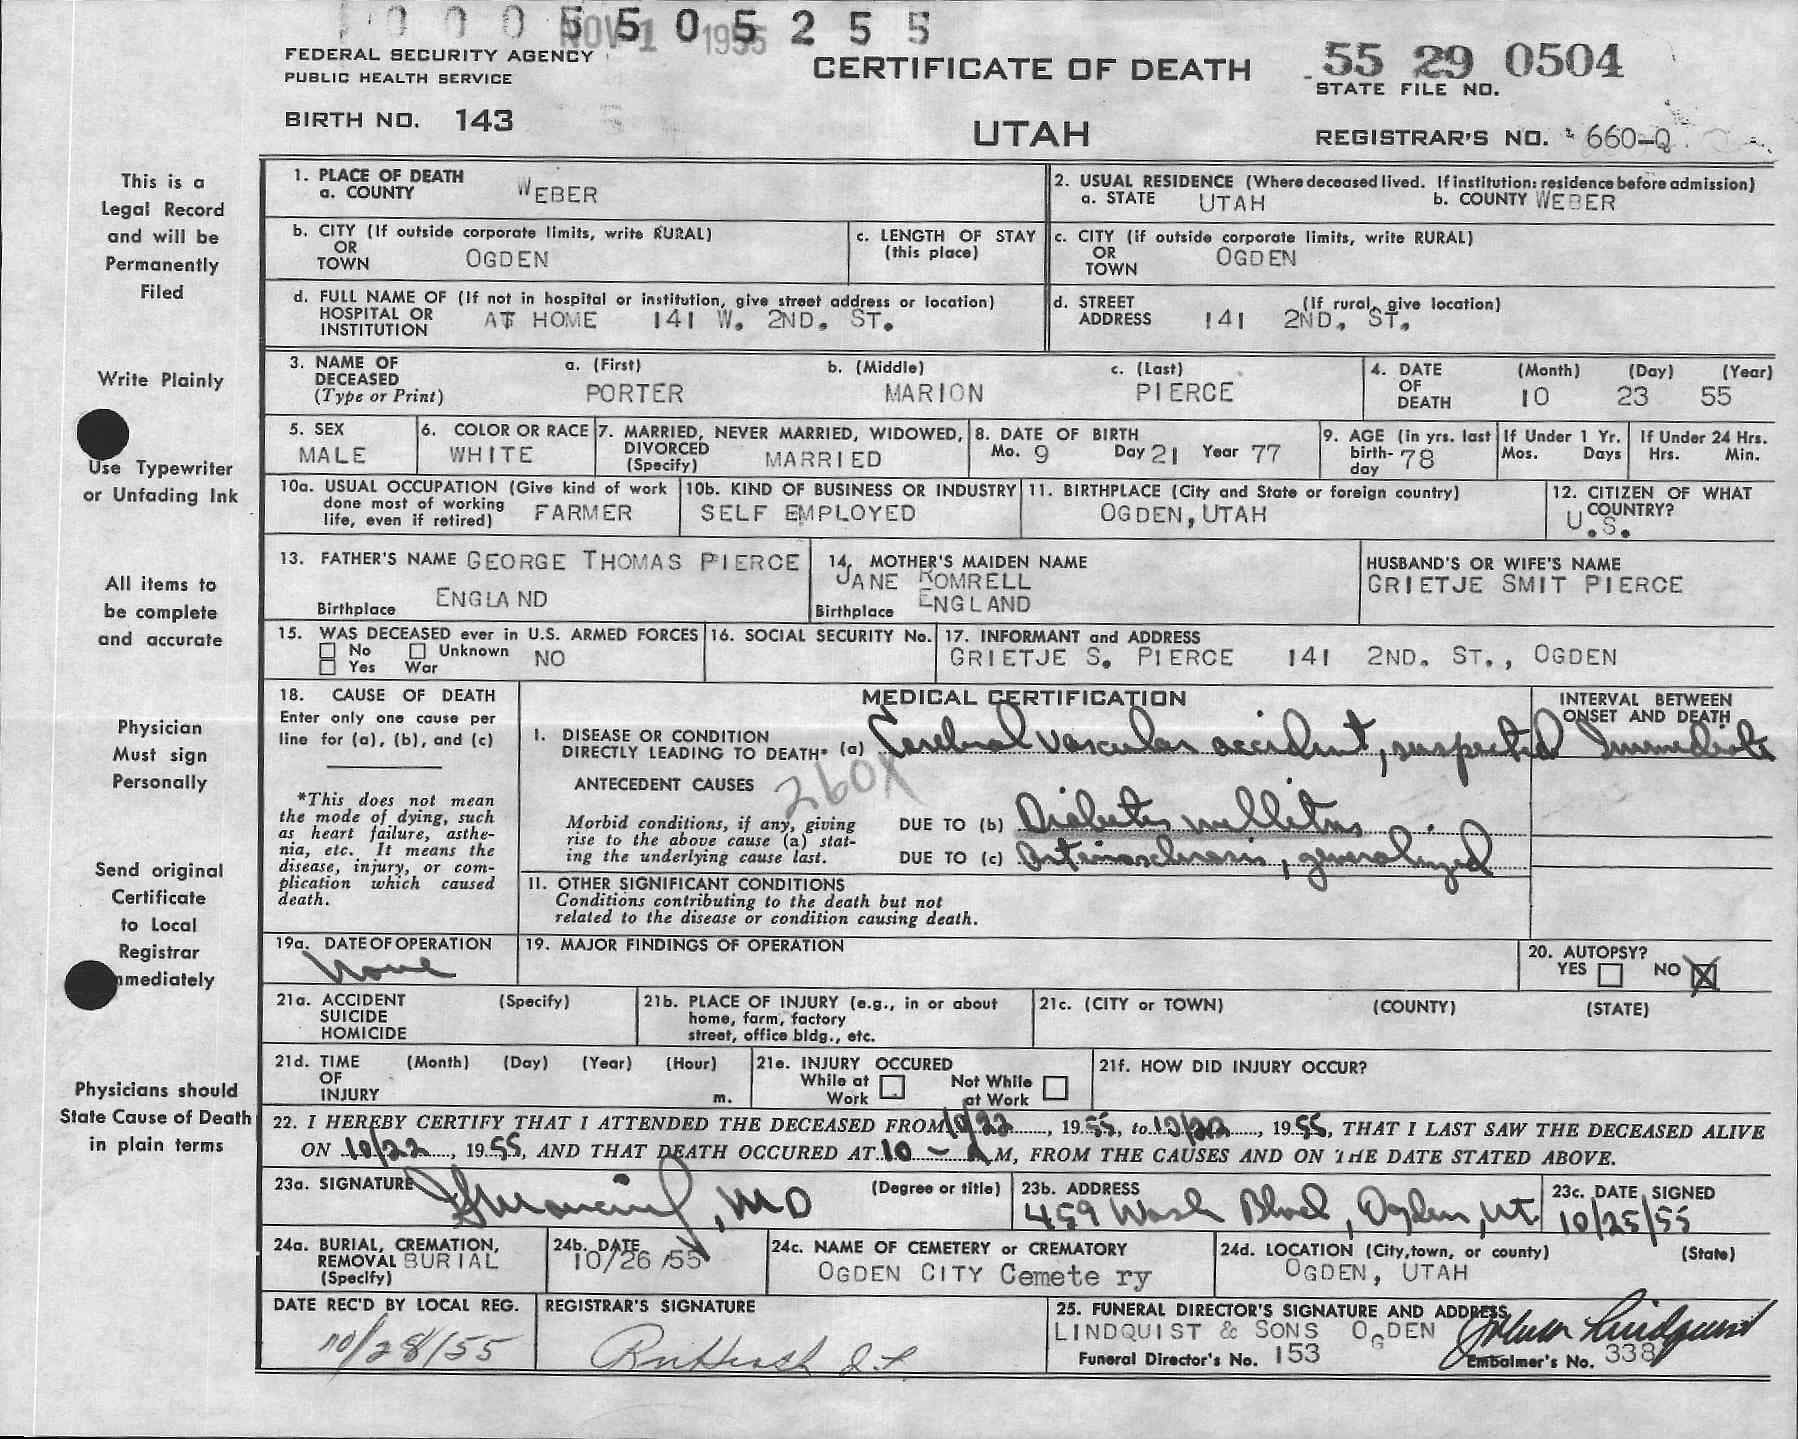 0 0 0 5 5 0 5 2 5 5
NOV 1 1955
FEDERAL SECURITY AGENCY
PUBLIC HEALTH SERVICE
BIRTH NO. 143
CERTIFICATE OF DEATH
UTAH
55 29 0504
STATE FILE NO.
REGISTRAR'S NO. 660-Q
This is a
Legal Record
and will be
Permanently
Filed
Write Plainly
Use Typewriter
or Unfading Ink
All items to
be complete
and accurate
Physician
Must sign
Personally
Send original
Certificate
to Local
Registrar
mmediately
Physicians should
State Cause of Death
in plain terms
1. PLACE OF DEATH
a. COUNTY WEBER
2. USUAL RESIDENCE (Where deceased lived. If institution: residence before admission)
a. STATE UTAH b. COUNTY WEBER
b. CITY (If outside corporate limits, write RURAL)
OR
TOWN OGDEN
c. LENGTH OF STAY
(this place)
c. CITY (if outside corporate limits, write RURAL)
OR
TOWN OGDEN
d. FULL NAME OF (If not in hospital or institution, give street address or location)
HOSPITAL OR
INSTITUTION AT HOME 141 W. 2ND. ST.
d. STREET (If rural, give location)
ADDRESS 141 2ND. ST.
3. NAME OF
DECEASED
(Type or Print)
a. (First) b. (Middle) c. (Last)
PORTER MARION PIERCE
4. DATE
OF
DEATH
(Month) (Day) (Year)
10 23 55
5. SEX
MALE
6. COLOR OR RACE
WHITE
7. MARRIED, NEVER MARRIED, WIDOWED,
DIVORCED
(Specify) MARRIED
8. DATE OF BIRTH
Mo. 9 Day 21 Year 77
9. AGE (in yrs. last
birth-
day 78
If Under 1 Yr.
Mos. Days
If Under 24 Hrs.
Hrs. Min.
10a. USUAL OCCUPATION (Give kind of work
done most of working
life, even if retired) FARMER
10b. KIND OF BUSINESS OR INDUSTRY
SELF EMPLOYED
11. BIRTHPLACE (City and State or foreign country)
OGDEN, UTAH
12. CITIZEN OF WHAT
COUNTRY?
U.S.
13. FATHER'S NAME GEORGE THOMAS PIERCE
Birthplace ENGLAND
14. MOTHER'S MAIDEN NAME
JANE ROMRELL
Birthplace ENGLAND
HUSBAND'S OR WIFE'S NAME
GRIETJE SMIT PIERCE
15. WAS DECEASED ever in U.S. ARMED FORCES
No Unknown NO
Yes War
16. SOCIAL SECURITY No.
17. INFORMANT and ADDRESS
GRIETJE S. PIERCE 141 2ND. ST., OGDEN
18. CAUSE OF DEATH
Enter only one cause per
line for (a), (b), and (c)
*This does not mean
the mode of dying, such
as heart failure, asthe-
nia, etc. It means the
disease, injury, or com-
plication which caused
death.
MEDICAL CERTIFICATION
INTERVAL BETWEEN
ONSET AND DEATH
I. DISEASE OR CONDITION
DIRECTLY LEADING TO DEATH* (a) Cerebral vascular accident, suspected Immediate
ANTECEDENT CAUSES 260X
Morbid conditions, if any, giving
rise to the above cause (a) stat-
ing the underlying cause last.
DUE TO (b) Diabetes mellitus
DUE TO (c) Arteriosclerosis, generalized
11. OTHER SIGNIFICANT CONDITIONS
Conditions contributing to the death but not
related to the disease or condition causing death.
19a. DATE OF OPERATION
None
19. MAJOR FINDINGS OF OPERATION
20. AUTOPSY?
YES NO X
21a. ACCIDENT (Specify)
SUICIDE
HOMICIDE
21b. PLACE OF INJURY (e.g., in or about
home, farm, factory
street, office bldg., etc.
21c. (CITY or TOWN) (COUNTY) (STATE)
21d. TIME (Month) (Day) (Year) (Hour)
OF
INJURY m.
21e. INJURY OCCURED
While at Work Not While at Work
21f. HOW DID INJURY OCCUR?
22. I HEREBY CERTIFY THAT I ATTENDED THE DECEASED FROM 10/22, 1955, to 10/22, 1955, THAT I LAST SAW THE DECEASED ALIVE
ON 10/22, 1955, AND THAT DEATH OCCURED AT 10 - A M, FROM THE CAUSES AND ON THE DATE STATED ABOVE.
23a. SIGNATURE (Degree or title)
, MD
23b. ADDRESS
459 Wash Block, Ogden, Ut.
23c. DATE SIGNED
10/25/55
24a. BURIAL, CREMATION,
REMOVAL BURIAL
(Specify)
24b. DATE
10/26/55
24c. NAME OF CEMETERY or CREMATORY
OGDEN CITY Cemete ry
24d. LOCATION (City, town, or county) (State)
OGDEN, UTAH
DATE REC'D BY LOCAL REG.
10/28/55
REGISTRAR'S SIGNATURE
25. FUNERAL DIRECTOR'S SIGNATURE AND ADDRESS
LINDQUIST & SONS OGDEN Lindquist
Funeral Director's No. 153 Embalmer's No. 338